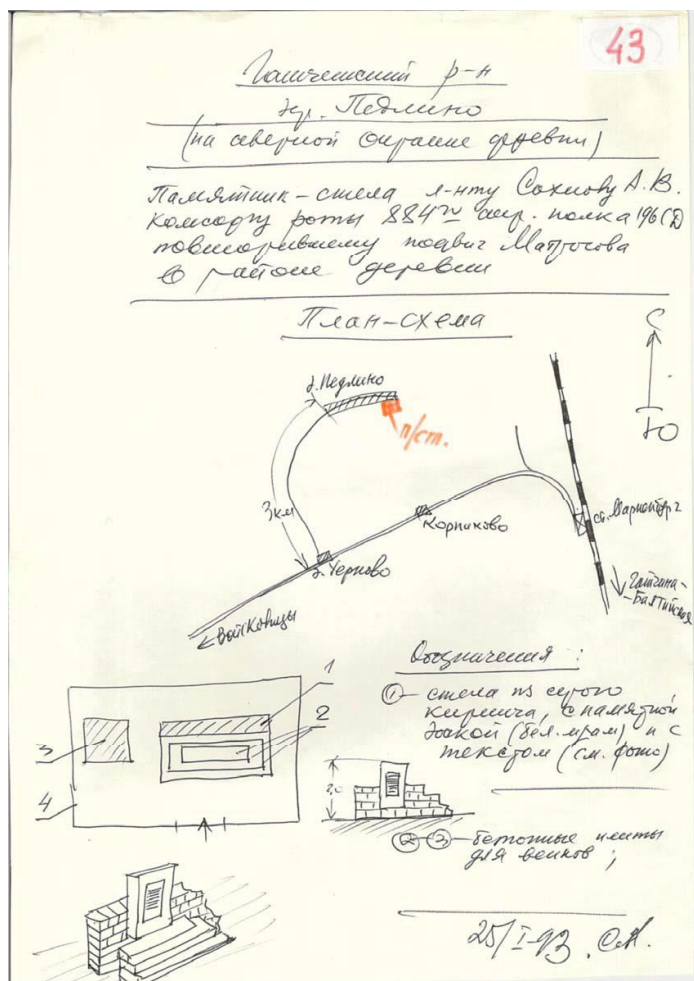 43
Гатчинский р-н
дер. Педлино
(на северной окраине деревни)
Памятник-стела л-нту Сохнову А.В.
роты 884го стр. полка 196СД
повторившему подвиг Матросова
в районе деревни
План-схема
С
Ю
д. Педлино
п/ст.
3 км
Корпиково
ст. Мариенбург
д. Черново
Гатчина-
-Балтийская
Войсковицы
Обозначения:
1
2
3
4
① - стела из серого
кирпича, с памятной
доской (бел. мрам) и с
текстом (см. фото)
2,0
② - ③ - бетонные плиты
для венков;
25/I-93.